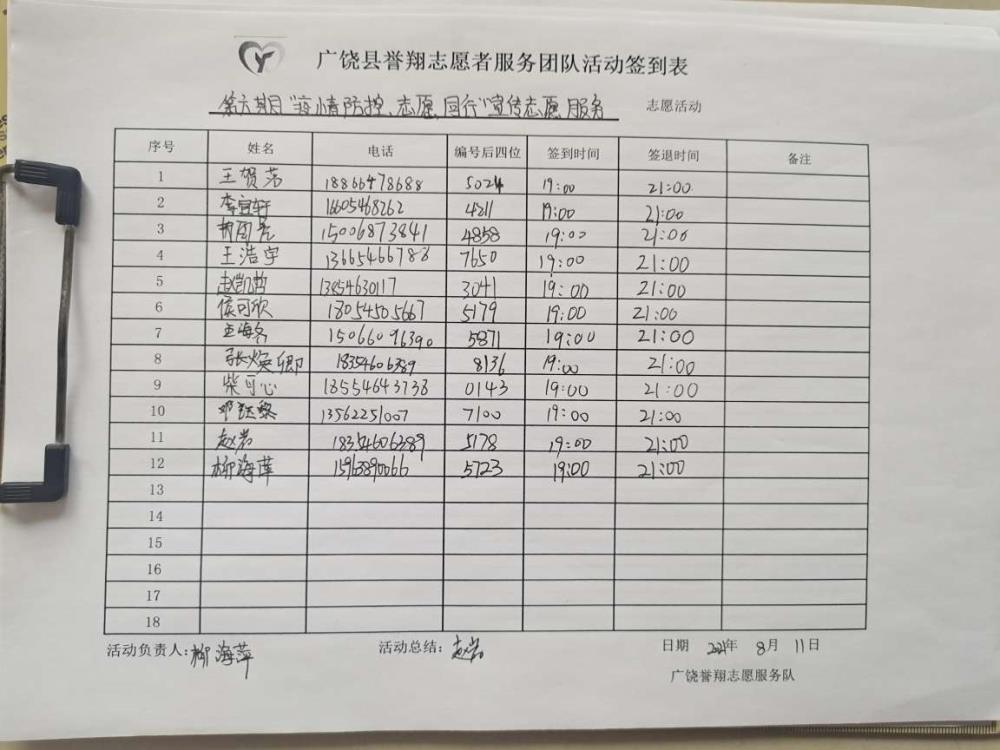 广饶县誉翔志愿者服务团队活动签到表
第六期目"疫情防控、志愿同行"宣传志愿服务 志愿活动
序号 姓名 电话 编号后四位 签到时间 签退时间 备注
1 王贺芳 18866478688 5024 19:00 21:00
2 李宜轩 16605468262 4211 19:00 21:00
3 15006873841 4858 19:00 21:00
4 王浩宇 13665466788 7650 19:00 21:00
5 赵凯哲 13854630117 3041 19:00 21:00
6 侯可欣 18054505667 5179 19:00 21:00
7 15066096390 5871 19:00 21:00
8 张焕卿 18354606389 8136 19:00 21:00
9 柴可心 18554643738 0143 19:00 21:00
10 邓钰黎 13562251007 7100 19:00 21:00
11 赵岩 18354606389 5178 19:00 21:00
12 柳海萍 15963890066 5723 19:00 21:00
13
14
15
16
17
18
活动负责人:柳海萍 活动总结:赵岩 日期 2021年 8月 11日
广饶誉翔志愿服务队